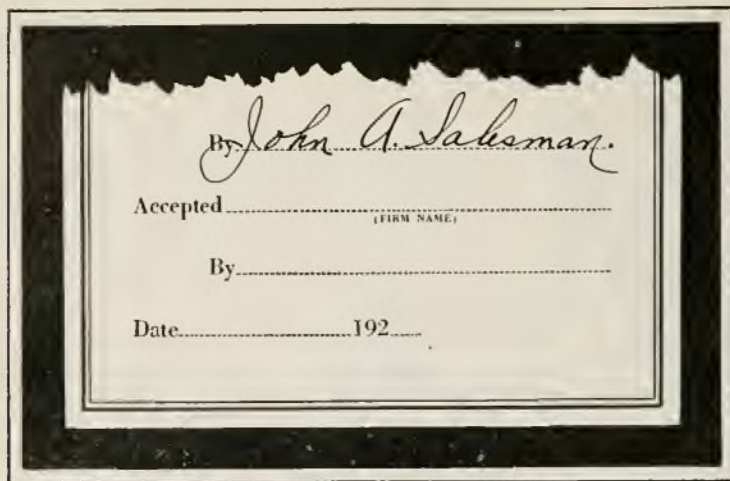 By John A. Salesman.
Accepted
(FIRM NAME)
By
Date 192